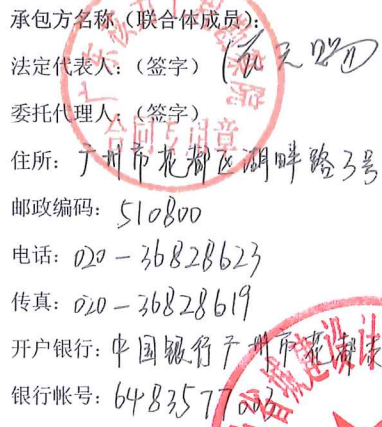 承包方名称（联合体成员）：
法定代表人：（签字）
委托代理人：（签字）
合同专用章
住所：广州市花都区湖畔路3号
邮政编码：510800
电话：020-36828623
传真：020-36828619
开户银行：中国银行广州市花都
银行帐号：6483577
省城建设计